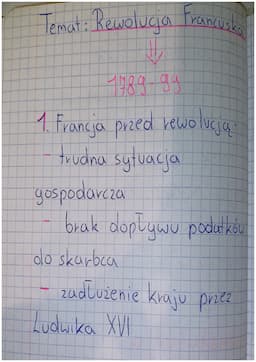 Temat: Rewolucja Francuska
1789-99
1. Francja przed rewolucją
- trudna sytuacja
gospodarcza
- brak dopływu podatków
do skarbca
- zadłużenie kraju przez
Ludwika XVI